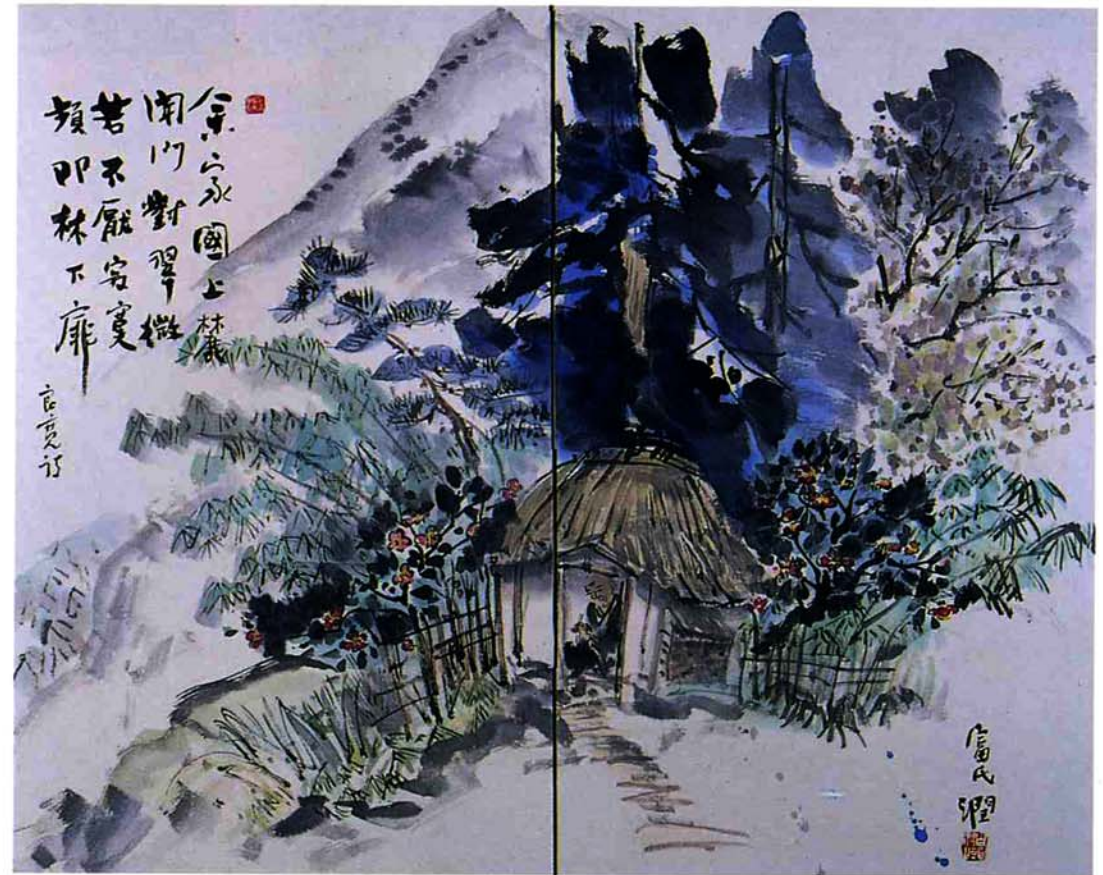 余家國上麓
開門對翠微
若不厭寂寞
頻叩林下扉
良寛詩
富氏潤